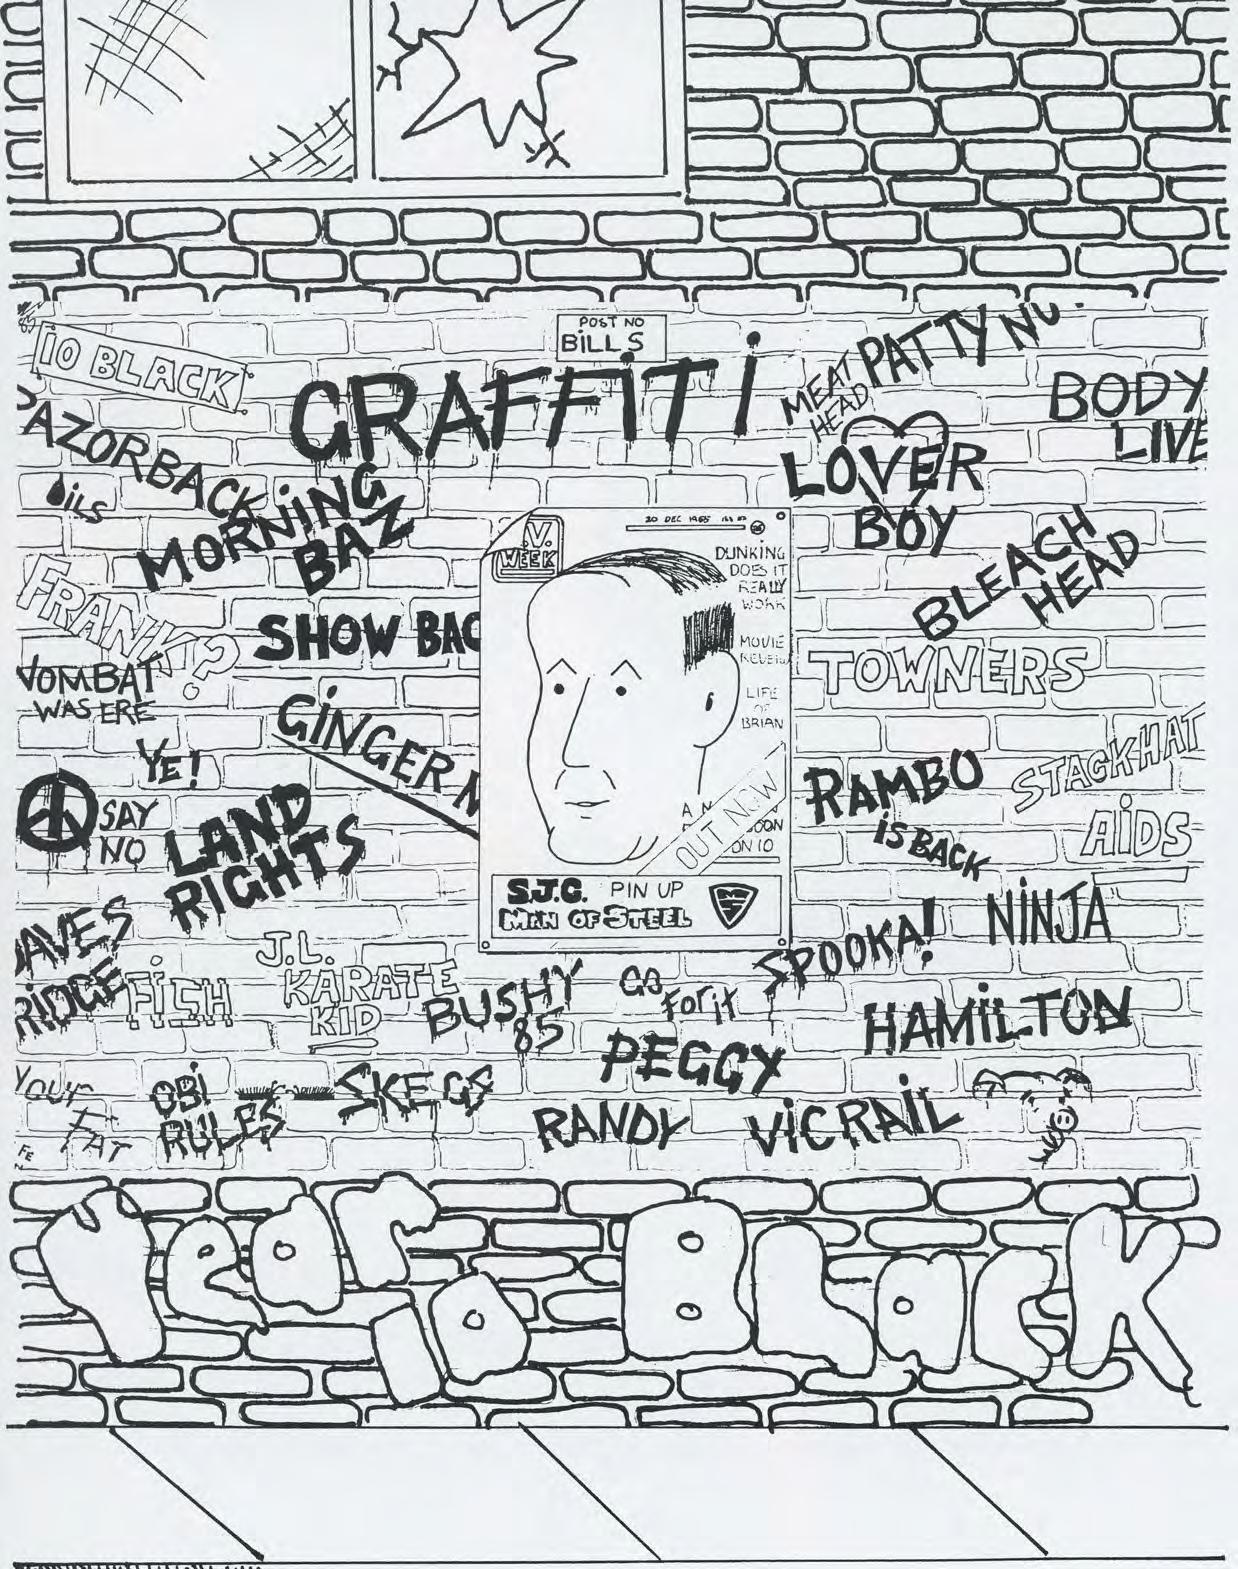 POST NO
BILLS
10 BLACK
GRAFFITI
MEAT
HEAD
PATTY
BODY
LIVE
AZORBACK
OILS
MORNING
BAZ
LOVER
BOY
BLEACH
HEAD
FRANK?
SHOW BAC
VOMBAT
WAS ERE
GINGER
YE!
SAY
NO
LAND
RIGHTS
T.V.
WEEK
20 DEC 1985
DUNKING
DOES IT
REALLY
WORK
MOVIE
LIFE
OF
BRIAN
OUT NOW
S.J.C. PIN UP
MAN OF STEEL
TOWNERS
STACKHAT
RAMBO
IS BACK
AIDS
NINJA
SPOOKA!
HAMILTON
AVES
RIDGE
FISH
J.L.
KARATE
KID
BUSHY
85
GO
For it
PEGGY
YOUr
FAT
OBI
RULES
SKEGS
RANDY
VICRAIL
Year
10
BLacK